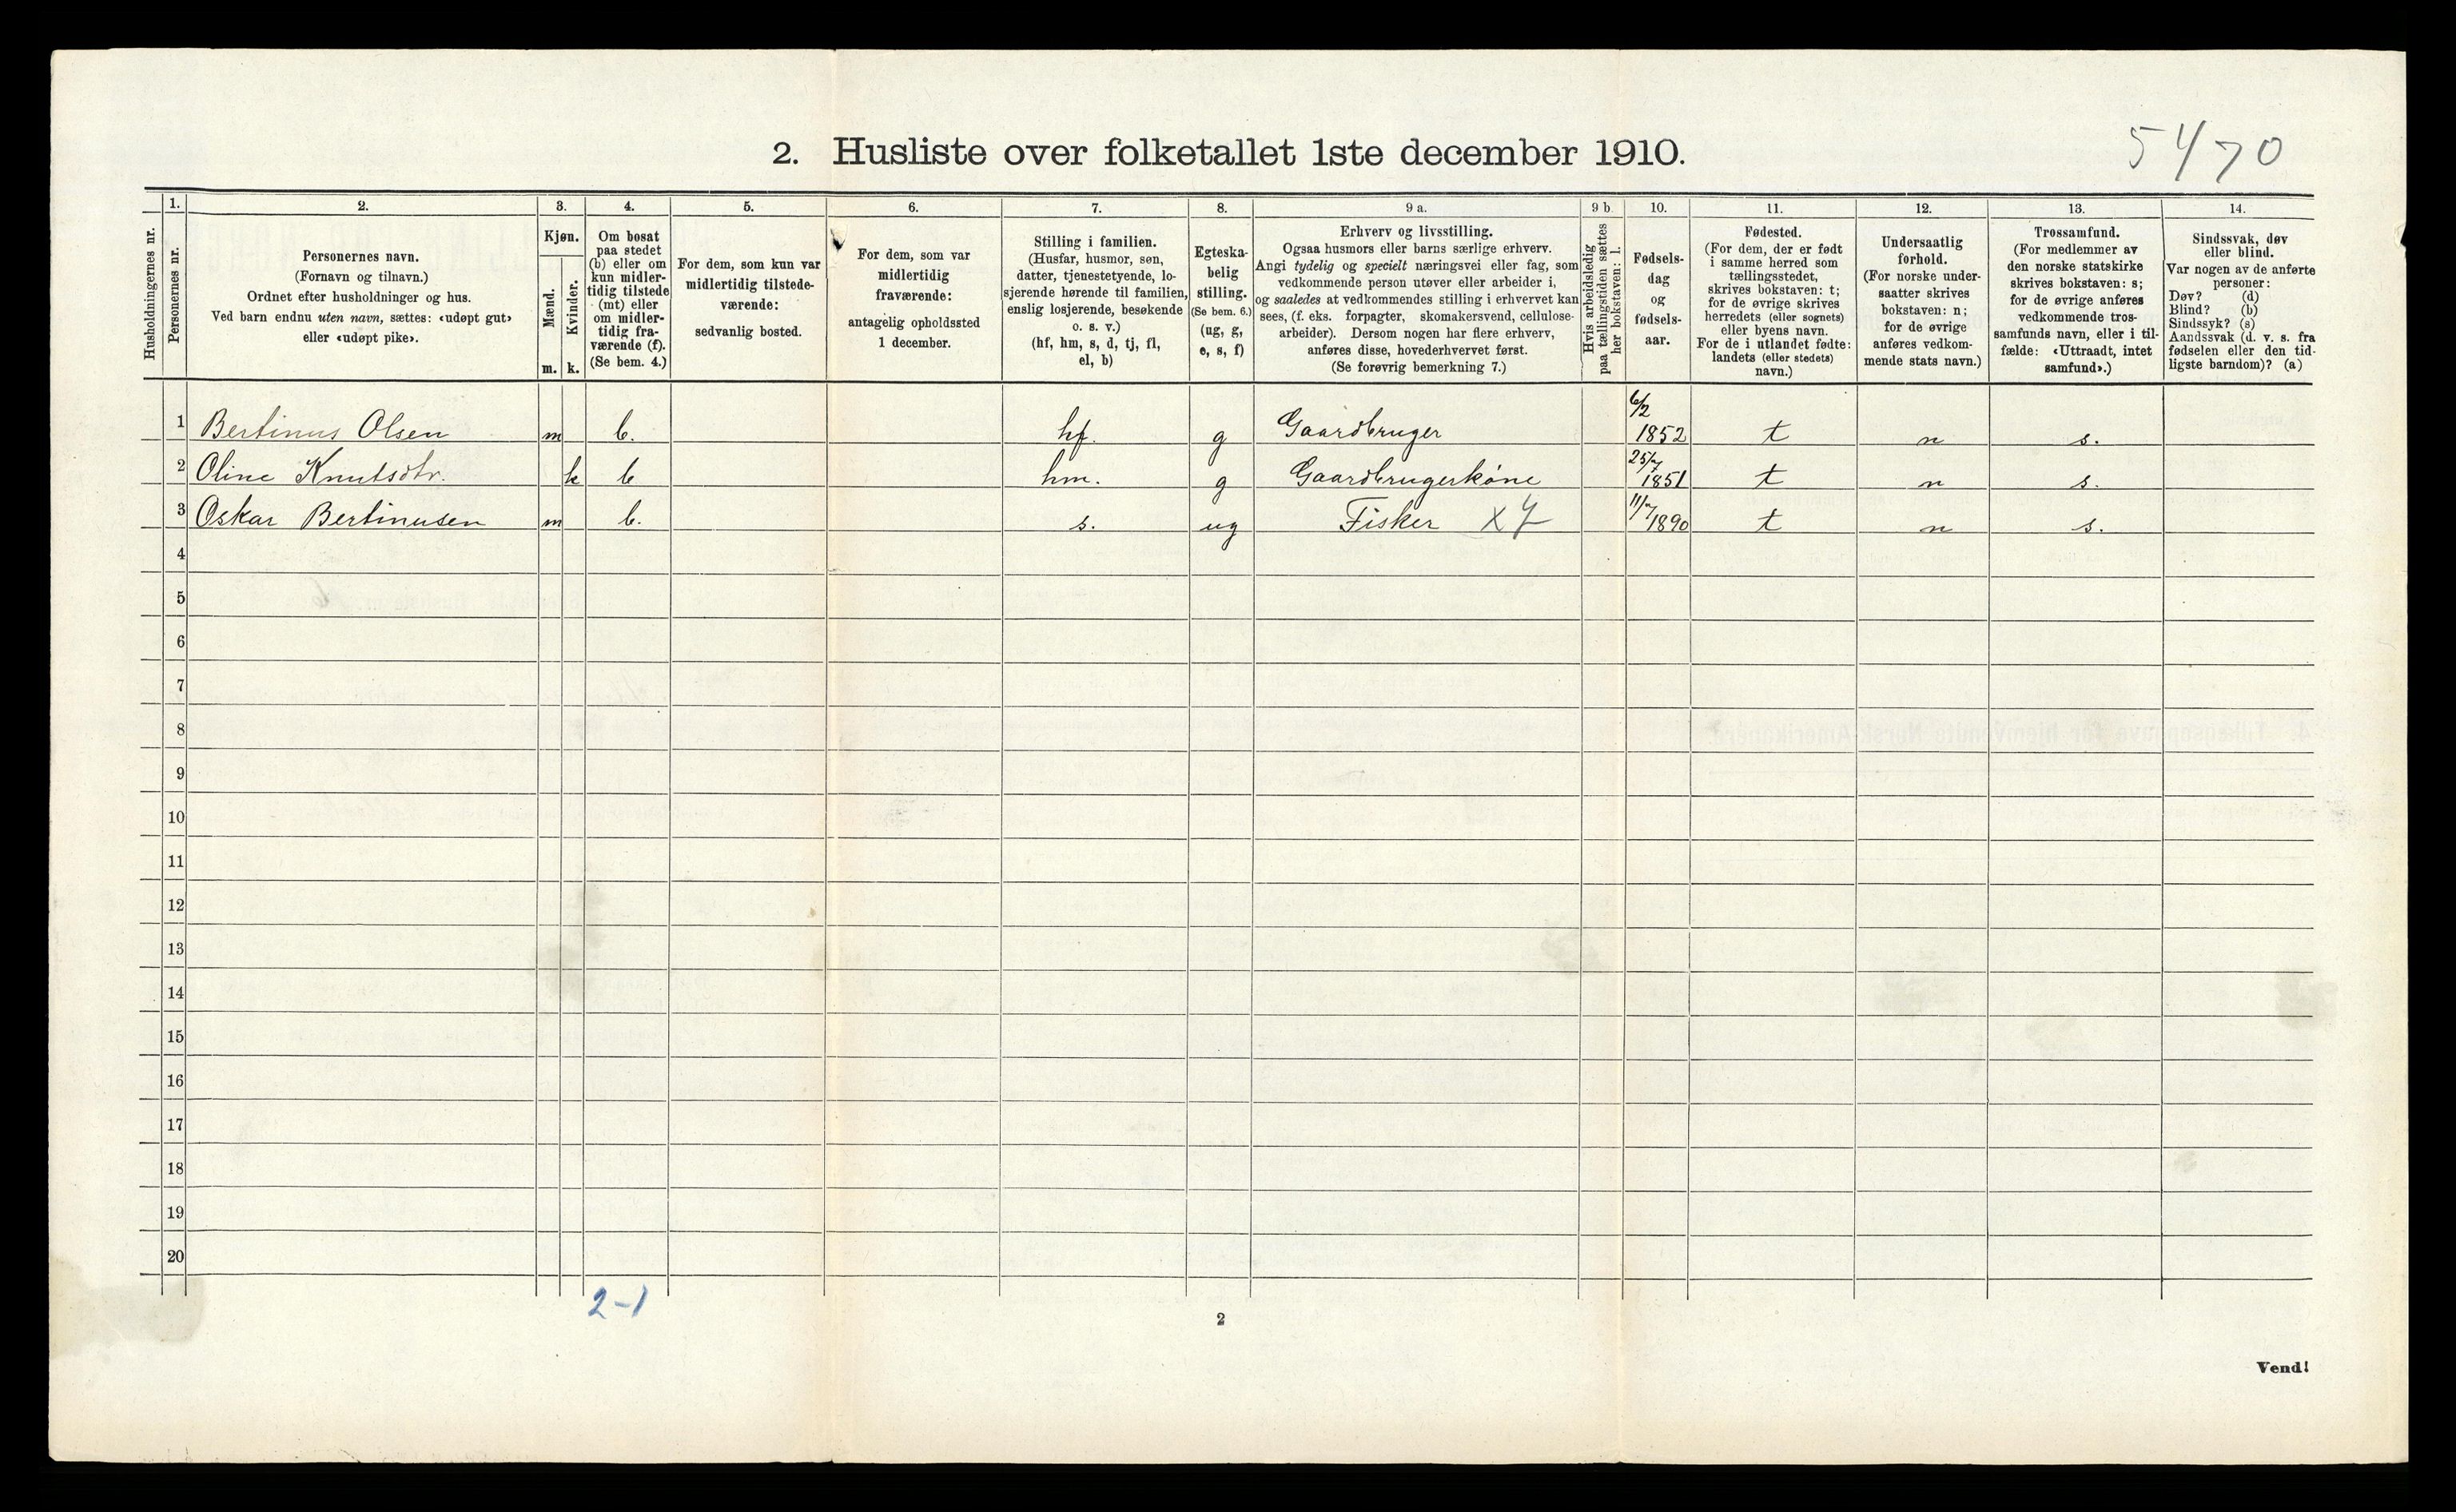 2. Husliste over folketallet 1ste december 1910.
5470
Husholdningernes nr.
1.
Personernes nr.
2.
Personernes navn.
(Fornavn og tilnavn.)
Ordnet efter husholdninger og hus.
Ved barn endnu uten navn, sættes: «udøpt gut»
eller «udøpt pike».
3.
Kjøn.
Mænd.
Kvinder.
m. k.
4.
Om bosat
paa stedet
(b) eller om
kun midler-
tidig tilstede
(mt) eller
om midler-
tidig fra-
værende (f).
(Se bem. 4.)
5.
For dem, som kun var
midlertidig tilstede-
værende:
sedvanlig bosted.
6.
For dem, som var
midlertidig
fraværende:
antagelig opholdssted
1 december.
7.
Stilling i familien.
(Husfar, husmor, søn,
datter, tjenestetyende, lo-
sjerende hørende til familien,
enslig losjerende, besøkende
o. s. v.)
(hf, hm, s, d, tj, fl,
el, b)
8.
Egteska-
belig
stilling.
(Se bem. 6.)
(ug, g,
e, s, f)
9 a.
Erhverv og livsstilling.
Ogsaa husmors eller barns særlige erhverv.
Angi tydelig og specielt næringsvei eller fag, som
vedkommende person utøver eller arbeider i,
og saaledes at vedkommendes stilling i erhvervet kan
sees, (f. eks. forpagter, skomakersvend, cellulose-
arbeider). Dersom nogen har flere erhverv,
anføres disse, hovederhvervet først.
(Se forøvrig bemerkning 7.)
9 b.
Hvis arbeidsledig
paa tællingstiden sættes
her bokstaven: l.
10.
Fødsels-
dag
og
fødsels-
aar.
11.
Fødested.
(For dem, der er født
i samme herred som
tællingsstedet,
skrives bokstaven: t;
for de øvrige skrives
herredets (eller sognets)
eller byens navn.
For de i utlandet fødte:
landets (eller stedets)
navn.)
12.
Undersaatlig
forhold.
(For norske under-
saatter skrives
bokstaven: n;
for de øvrige
anføres vedkom-
mende stats navn.)
13.
Trossamfund.
(For medlemmer av
den norske statskirke
skrives bokstaven: s;
for de øvrige anføres
vedkommende tros-
samfunds navn, eller i til-
fælde: «Uttraadt, intet
samfund».)
14.
Sindssvak, døv
eller blind.
Var nogen av de anførte
personer:
Døv? (d)
Blind? (b)
Sindssyk? (s)
Aandssvak (d. v. s. fra
fødselen eller den tid-
ligste barndom)? (a)
1 Bertinus Olsen m b. hf. g Gaardbruger 6/2 1852 t n s.
2 Oline Knutsdtr. k b hm. g Gaardbrugerkone 25/7 1851 t n s.
3 Oskar Bertinusen m b. s. ug Fisker X 7 11/7 1890 t n s.
4
5
6
7
8
9
10
11
12
13
14
15
16
17
18
19
20
2-1
2
Vend!